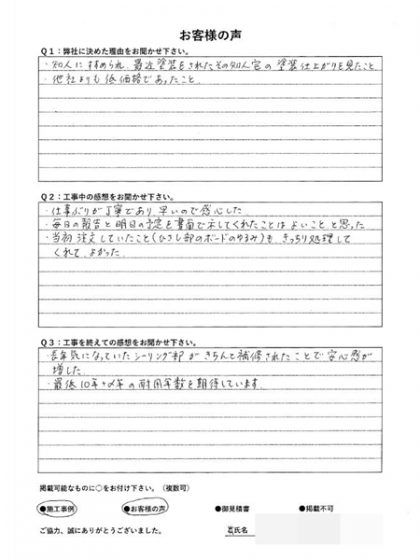 お客様の声
Q1:弊社に決めた理由をお聞かせ下さい。
・知人にすすめられ、最近塗装をされたその知人宅の塗装仕上がりを見たこと
・他社よりも低価格であったこと
Q2:工事中の感想をお聞かせ下さい。
・仕事ぶりが丁寧であり早いので感心した
・毎日の報告と明日の予定を書面で示してくれたことはよいことと思った
・当初注文していたこと(ひさし部のボードのゆるみ)も、きっちり処理して
くれて、よかった
Q3:工事を終えての感想をお聞かせ下さい。
・長年気になっていたシーリング部がきちんと補修されたことで安心感が
増した
・最低10年+α年の耐用年数を期待しています
掲載可能なものに○をお付け下さい。(複数可)
●施工事例 ●お客様の声 ●御見積書 ●掲載不可
ご協力、誠にありがとうございました。
氏名